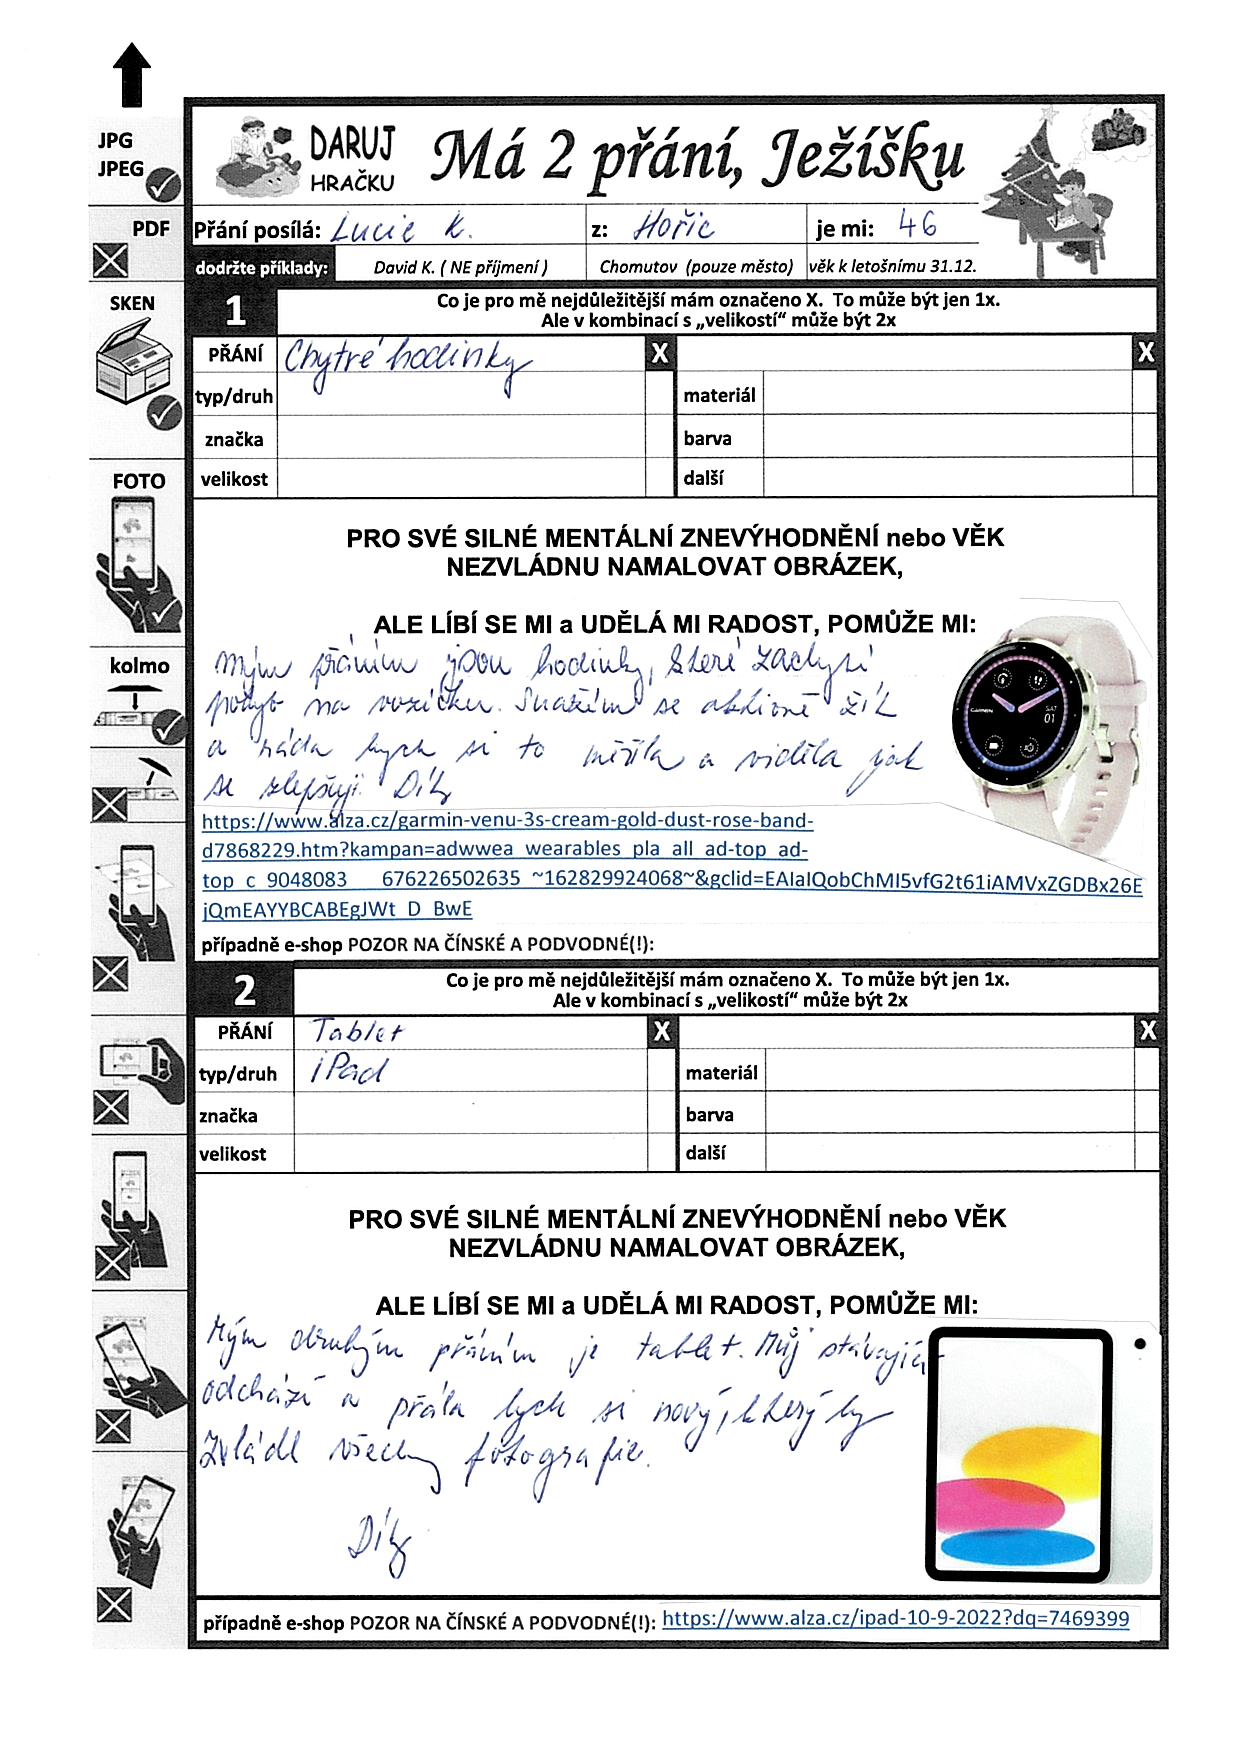 JPG
JPEG
PDF
SKEN
FOTO
kolmo
DARUJ
HRAČKU
Má 2 přání, Ježíšku
Přání posílá: Lucie K. z: Hořic je mi: 46
dodržte příklady: David K. ( NE příjmení ) Chomutov (pouze město) věk k letošnímu 31.12.
1 Co je pro mě nejdůležitější mám označeno X. To může být jen 1x.
Ale v kombinací s „velikostí“ může být 2x
PŘÁNÍ Chytré hodinky X X
typ/druh materiál
značka barva
velikost další
PRO SVÉ SILNÉ MENTÁLNÍ ZNEVÝHODNĚNÍ nebo VĚK
NEZVLÁDNU NAMALOVAT OBRÁZEK,
ALE LÍBÍ SE MI a UDĚLÁ MI RADOST, POMŮŽE MI:
Mým přáním jsou hodinky, které zachytí
pohyb na vozíčku. Snažím se aktivně žít
a ráda bych si to měřila a viděla jak
se zlepšuji. Díky
GARMIN
SAT
01
https://www.alza.cz/garmin-venu-3s-cream-gold-dust-rose-band-
d7868229.htm?kampan=adwwea_wearables_pla_all_ad-top_ad-
top_c_9048083___676226502635_~162829924068~&gclid=EAIaIQobChMI5vfG2t61iAMVxZGDBx26E
jQmEAYYBCABEgJWt_D_BwE
případně e-shop POZOR NA ČÍNSKÉ A PODVODNÉ(!):
2 Co je pro mě nejdůležitější mám označeno X. To může být jen 1x.
Ale v kombinací s „velikostí“ může být 2x
PŘÁNÍ Tablet X X
typ/druh iPad materiál
značka barva
velikost další
PRO SVÉ SILNÉ MENTÁLNÍ ZNEVÝHODNĚNÍ nebo VĚK
NEZVLÁDNU NAMALOVAT OBRÁZEK,
ALE LÍBÍ SE MI a UDĚLÁ MI RADOST, POMŮŽE MI:
Mým druhým přáním je tablet. Můj stávající
odchází a přála bych si nový, který by
zvládl všechny fotografie.
Díky
případně e-shop POZOR NA ČÍNSKÉ A PODVODNÉ(!): https://www.alza.cz/ipad-10-9-2022?dq=7469399